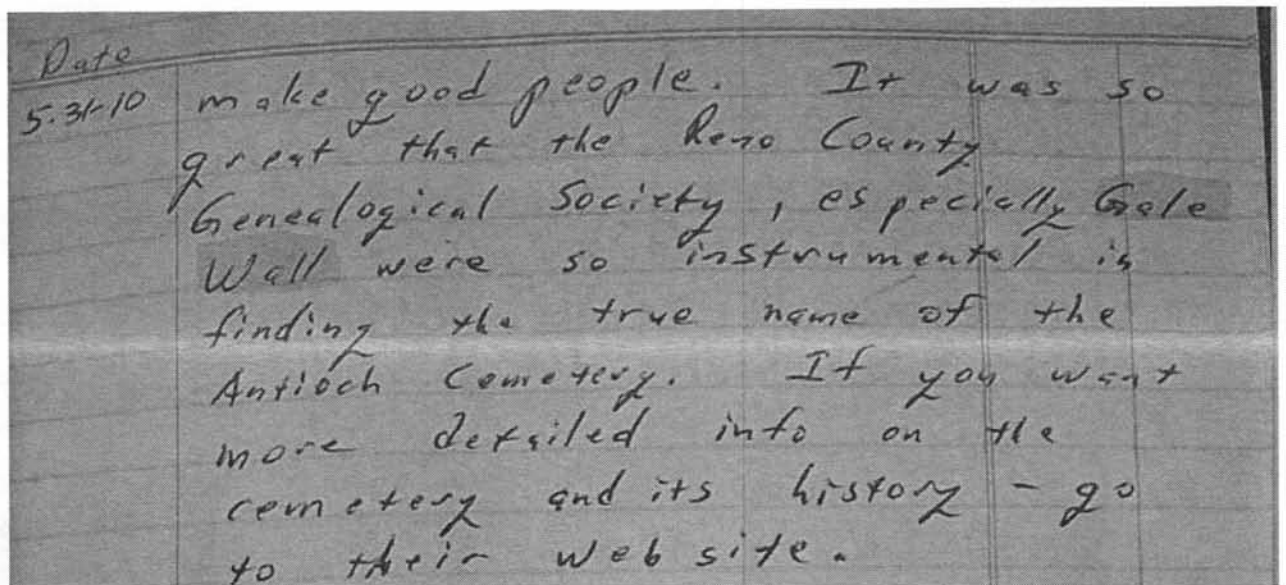 Date
5-31-10 make good people. It was so
great that the Reno County
Genealogical Society, especially Gale
Wall were so instrumental in
finding the true name of the
Antioch Cemetery. If you want
more detailed info on the
cemetery and its history - go
to their web site.